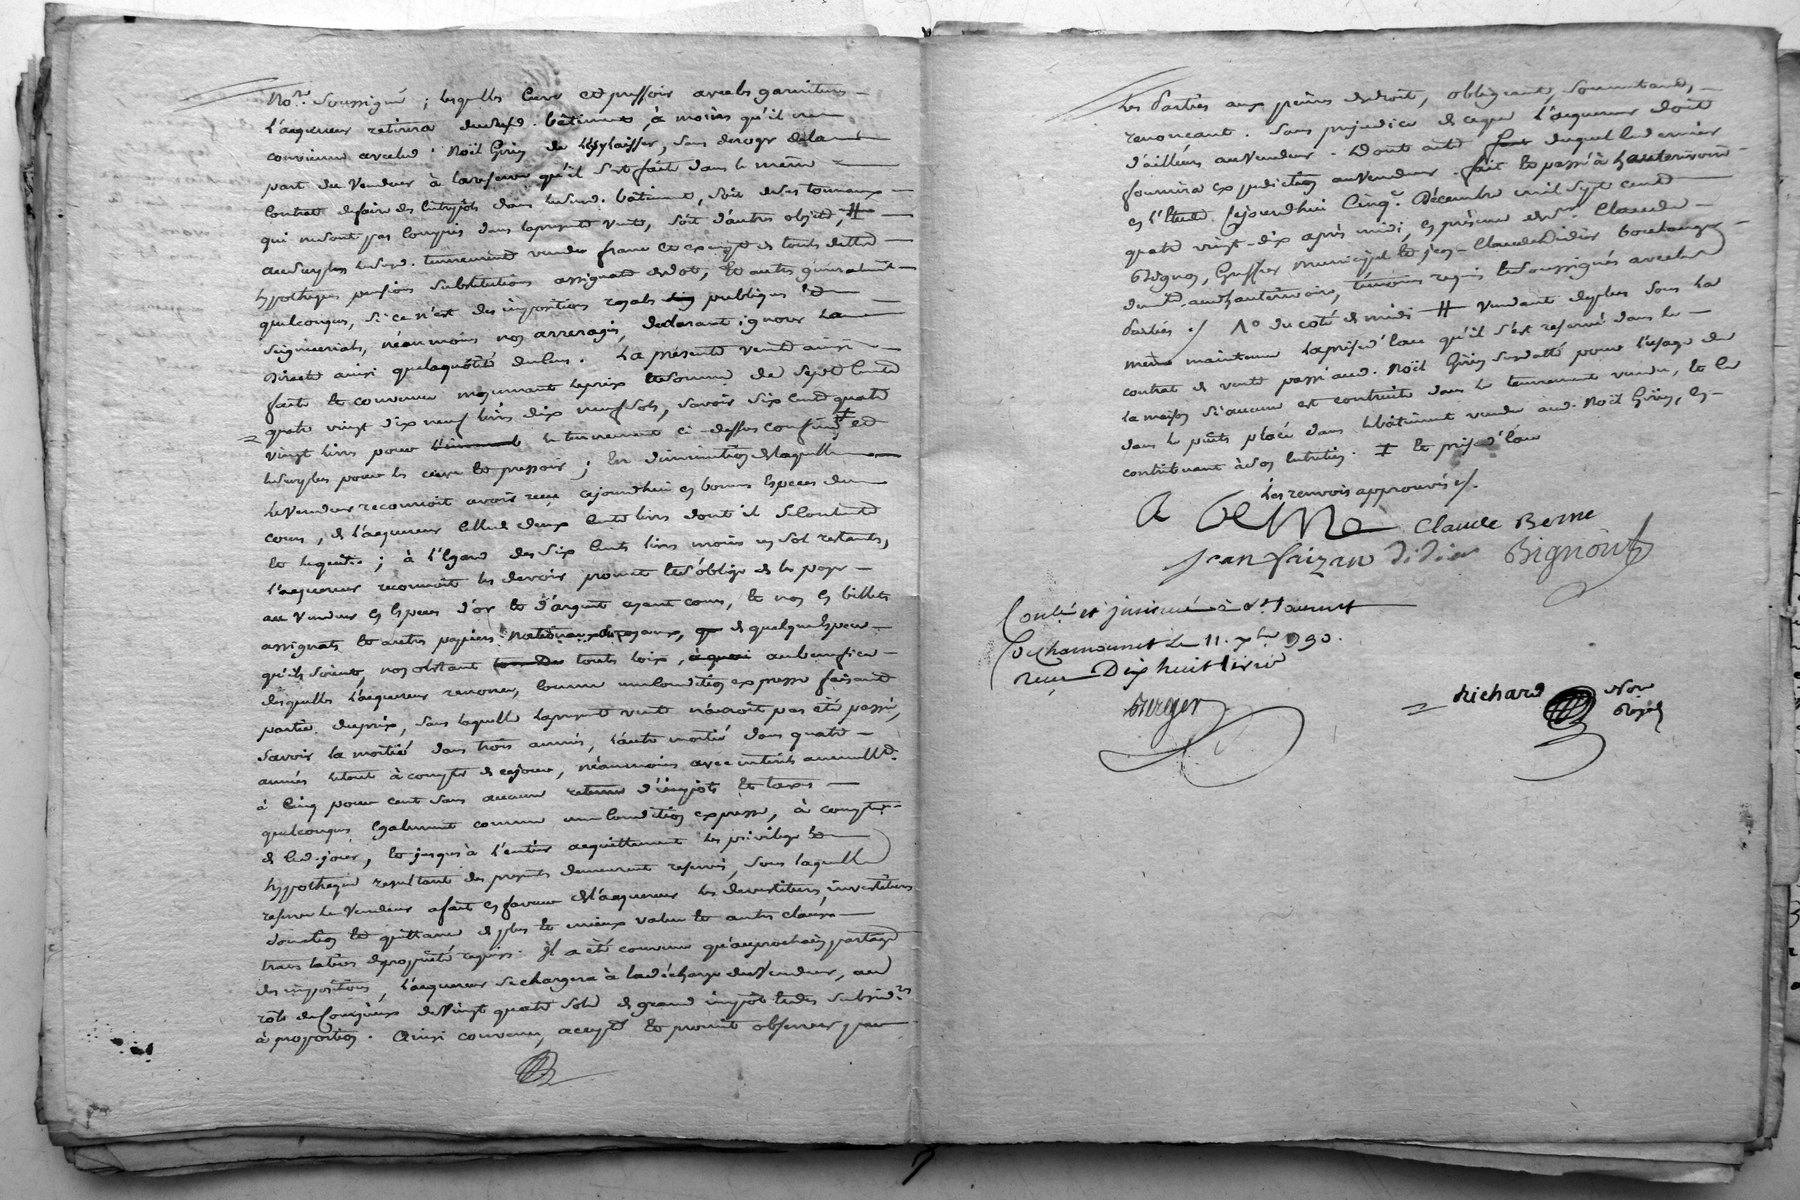 No.re soussigné ; lesquelles cuve et pressoir avec les garnitures
l'acquereur retirera dudit bâtiment, à moins qu'il ne
convienne avec led. Noël Giriz de les y laisser, sans deroger de la
part du Vendeur à la reserve qu'il s'est faite dans le même
contrat de faire des entrepôts dans led. bâtiment, soit de ses tonneaux
qui ne sont pas compris dans la presente vente, soit d'autres objets, #
au surplus led. tenement vendu franc et exempt de toute dette
hypotheques pensions substitutions assignat de dot, et autres generalement
quelconques, si ce n'est des impositions royales publiques et
seigneuriales, néanmoins nos arrerages, declarant ignorer la
directe ainsi que la quôtité du lieu. La présente vente ainsi
faite et convenue moyennant le prix et somme de sept cents
quatre vingt dix neuf livres dix neuf sols, savoir six cents quatre
vingt livres pour le tenement ci-dessus confiné, # et
le surplus pour les cuve et pressoir ; en diminution de laquelle
le Vendeur reconnoit avoir reçu cejourd'hui en bonnes especes du
cours, de l'acquereur celle de deux cents livres dont il se contente
et le quitte ; à l'égard des six cents livres moins un sol restants,
l'acquereur reconnoit les devoir promet et s'oblige de les payer
au Vendeur en especes d'or et d'argent ayant cours, et non en billets
assignats et autres papiers nationaux royaux, de quelqu'espece
qu'ils soient, nonobstant toutes loix, au benefice
desquelles l'acquereur renonce, comme une condition expresse faisant
partie du prix, sans laquelle la presente vente n'auroit pas été passée,
savoir la moitié dans trois années, l'autre moitié dans quatre
années le tout à compter de ce jour, néanmoins avec interêts annuelle.t
à cinq pour cent sans aucune retenue d'impots et taxes
quelconques egalement comme une condition expresse, à compter
de led. jour, et jusques à l'entier acquittement les privilege et
hypotheque resultant des presentes demeurent reservés, sous laquelle
reserve le Vendeur a fait en faveur de l'acquereur les devestitures, investitures
donation et quittance de plus et mieux value et autres clauses
translatives de propriété requises. Il a été convenu qu'au prochain partage
des impositions, l'acquereur se chargera à la décharge du Vendeur, au
rôle de Couzieux de Vingt quatre sols de grand impôt et des subsid.res
à proportion. Ainsi convenu, accepté et promit observer par
les Parties aux peines de droit, obligeant, soumettant,
renonçant. Sans prejudice de ce que l'acquereur doit
d'ailleurs au Vendeur. Dont acte duquel ledernier
fournira expedition au Vendeur. fait et passé à hauterivoire
en l'étude. Cejourdhui Cinq.e Décembre mil sept cent
quatre vingt-dix après midi, en présence de S.r Claude
Bignon, Greffier municipal et Jean-Claude Didier boulanger
dem.t aud. hauterivoire, témoins requis et soussignés avec les
Parties ./. 1.o du coté de midi # Vendant de plus sous la
même maintenue la prise d'eau qu'il s'est reservée dans le
contrat de vente passé aud. Noël Giriz susdatté pour l'usage de
la maison si aucune est contruite dans le tenement vendu, et ce
dans le puits placé dans le bâtiment vendu aud. Noël Giriz, en
contribuant à son entretien. ‡ et prise d'eau
Les renvois approuvés ./.
A Berne Claude Berne
Jean Didier Bignon
Contlé et insinué à St Laurent
De Chamousset le 11. xbre 1790.
reçu Dix huit livres
Berger
Richard Nore Royal